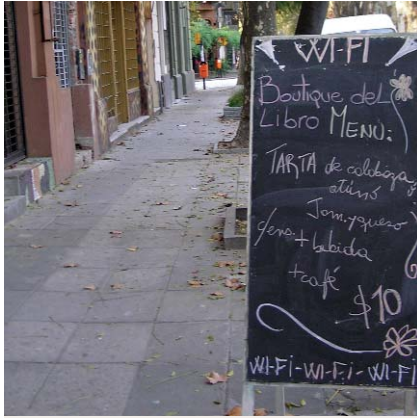 WI-FI
Boutique del
Libro MENU:
TARTA de calabaza,
atún ó
Jam. y queso
c/ens. + bebida
+ café
$10
WI-FI-WI-FI-WI-FI